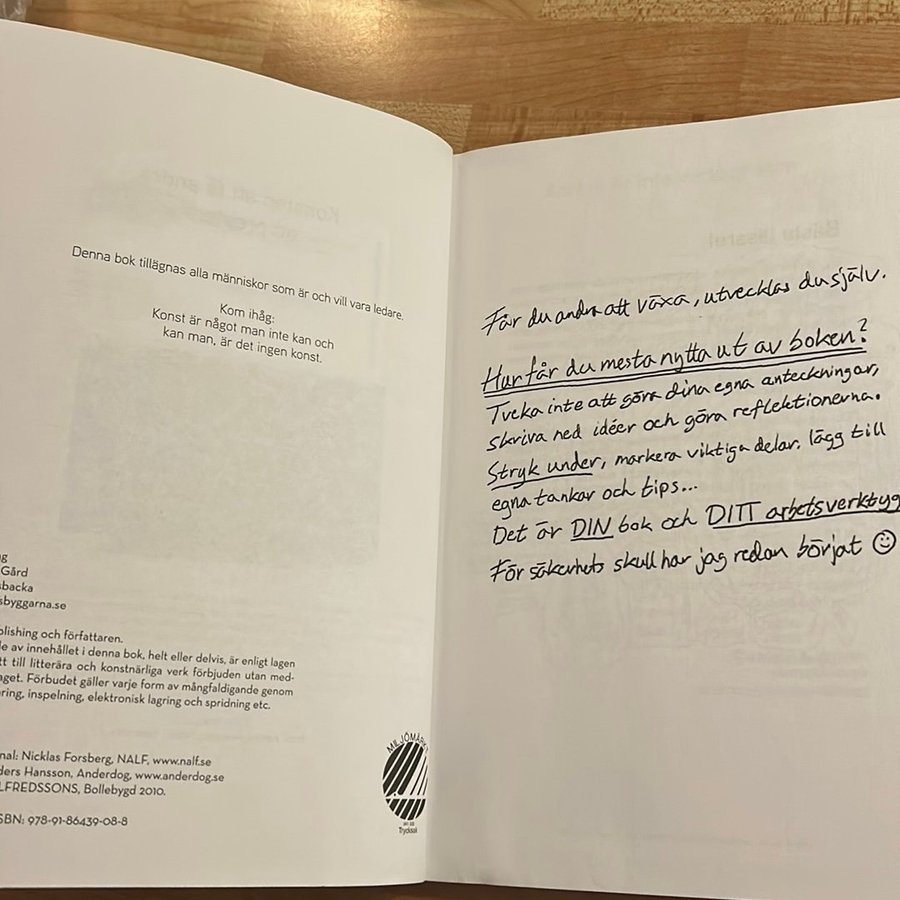 Denna bok tillägnas alla människor som är och vill vara ledare.
Kom ihåg:
Konst är något man inte kan och
kan man, är det ingen konst.
g
Gård
sbacka
sbyggarna.se
olishing och författaren.
le av innehållet i denna bok, helt eller delvis, är enligt lagen
tt till litterära och konstnärliga verk förbjuden utan med-
aget. Förbudet gäller varje form av mångfaldigande genom
ring, inspelning, elektronisk lagring och spridning etc.
nal: Nicklas Forsberg, NALF, www.nalf.se
ders Hansson, Anderdog, www.anderdog.se
LFREDSSONS, Bollebygd 2010.
SBN: 978-91-86439-08-8
MILJÖMÄRKT
Trycksak
Får du andra att växa, utvecklas du själv.
Hur får du mesta nytta ut av boken?
Tveka inte att göra dina egna anteckningar,
skriva ned idéer och göra reflektionerna.
Stryk under, markera viktiga delar, lägg till
egna tankar och tips...
Det är DIN bok och DITT arbetsverktyg
För säkerhets skull har jag redan börjat ☺